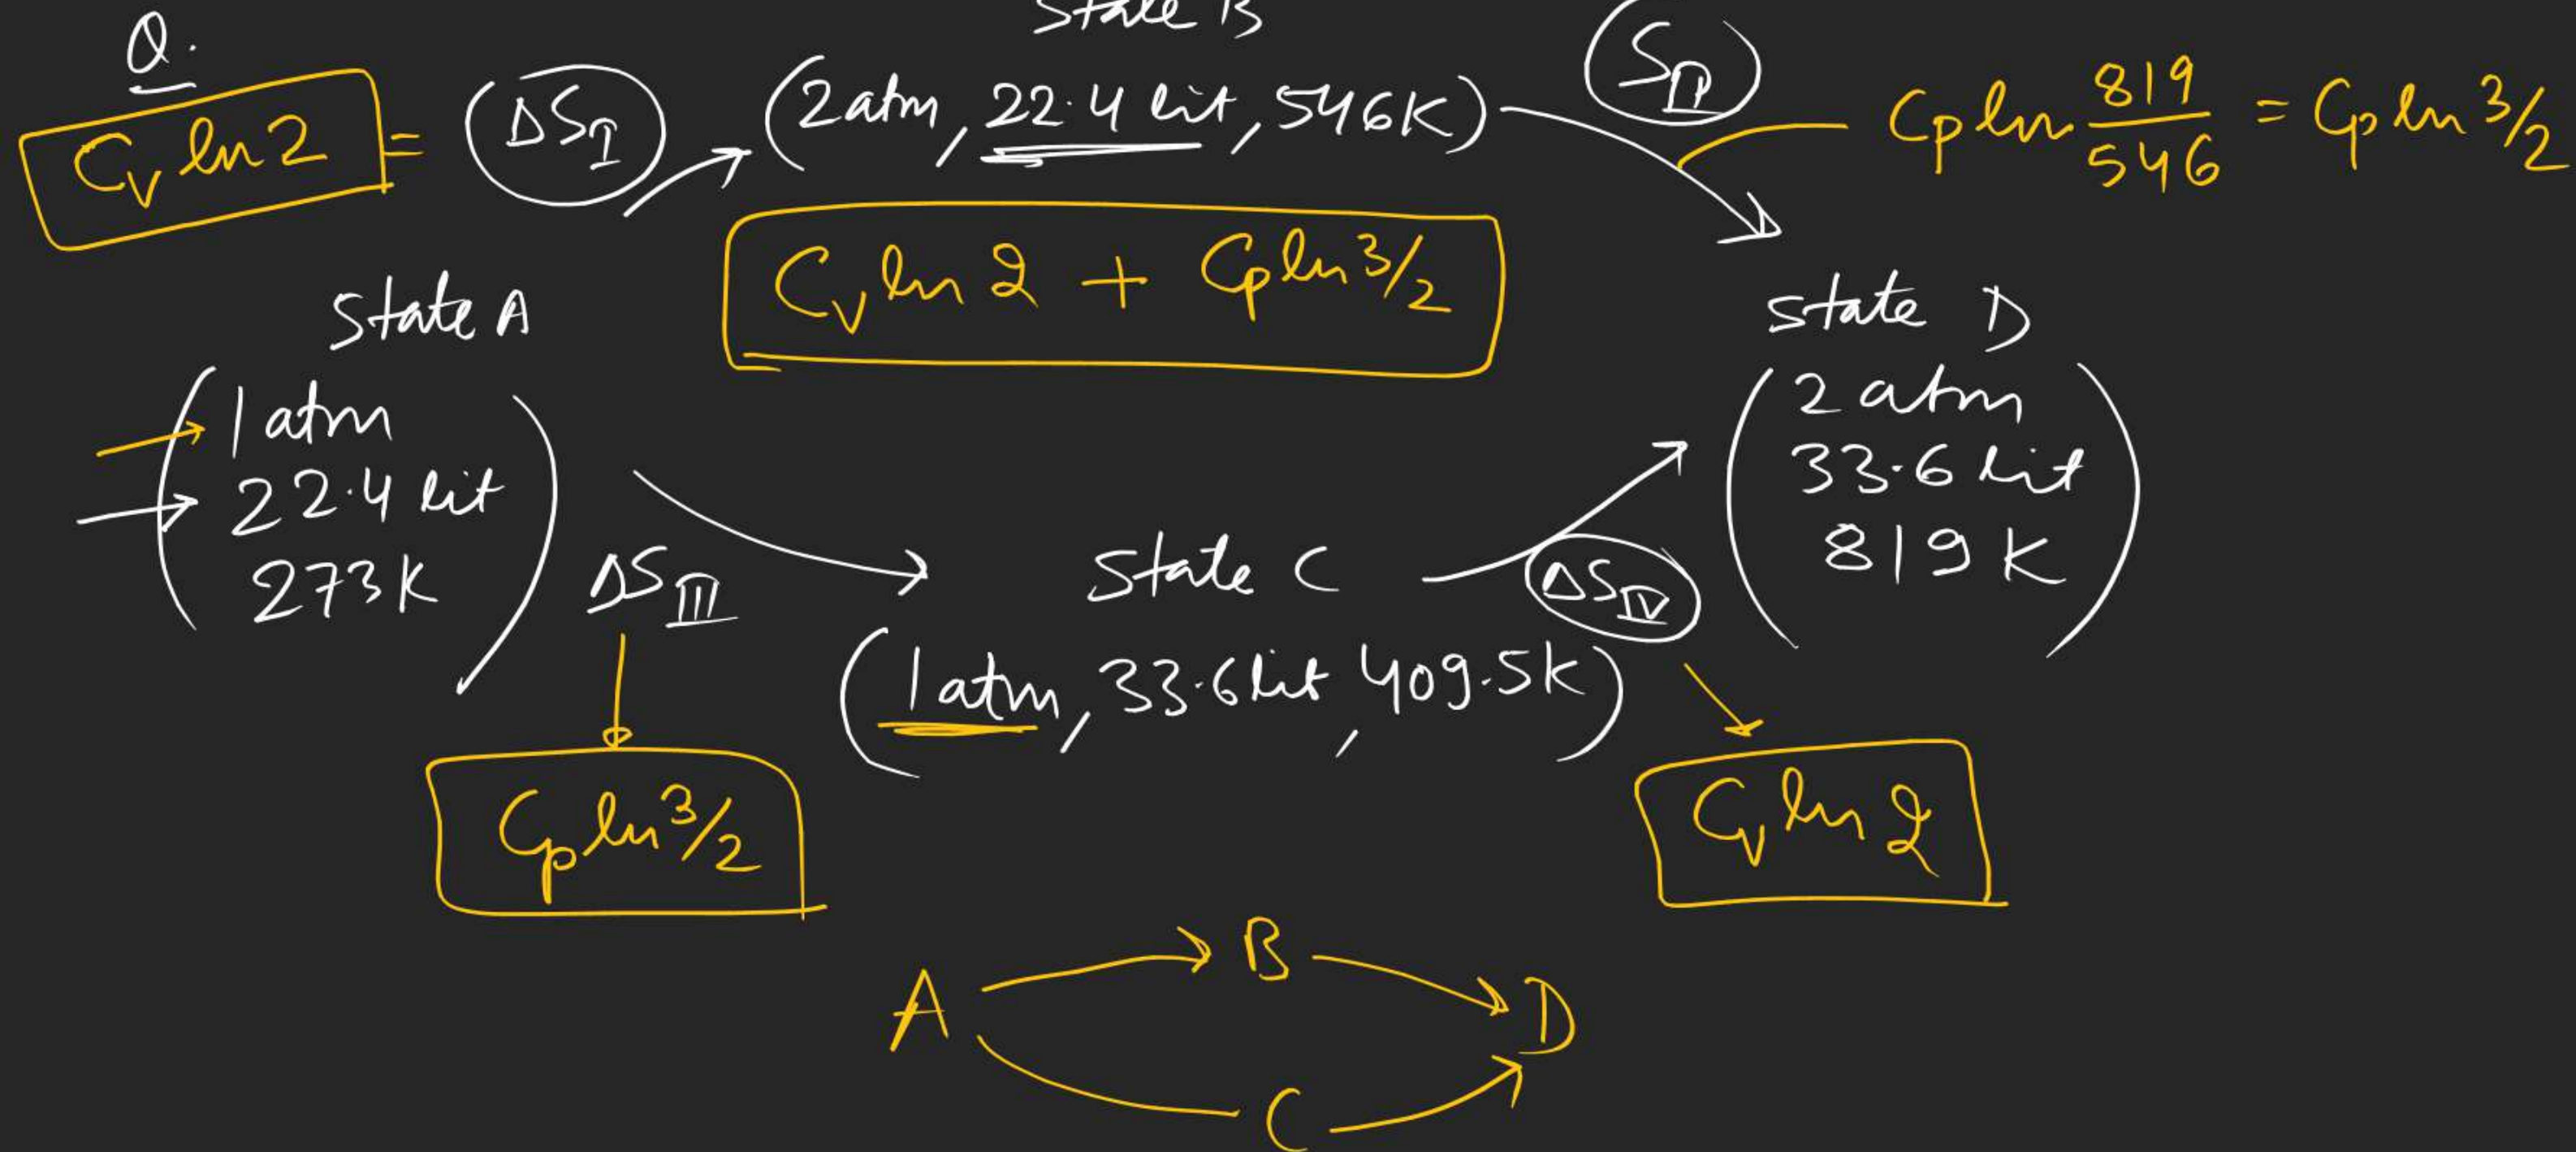 Q.
State B
C_V ln 2 = ΔS_I
(2 atm, 22.4 lit, 546K)
S_II
C_P ln 819/546 = C_P ln 3/2
C_V ln 2 + C_P ln 3/2
State A
1 atm
22.4 lit
273K
State D
2 atm
33.6 lit
819 K
ΔS_III
State C
ΔS_IV
(1 atm, 33.6 lit, 409.5K)
C_P ln 3/2
C_V ln 2
A → B → D
A → C → D